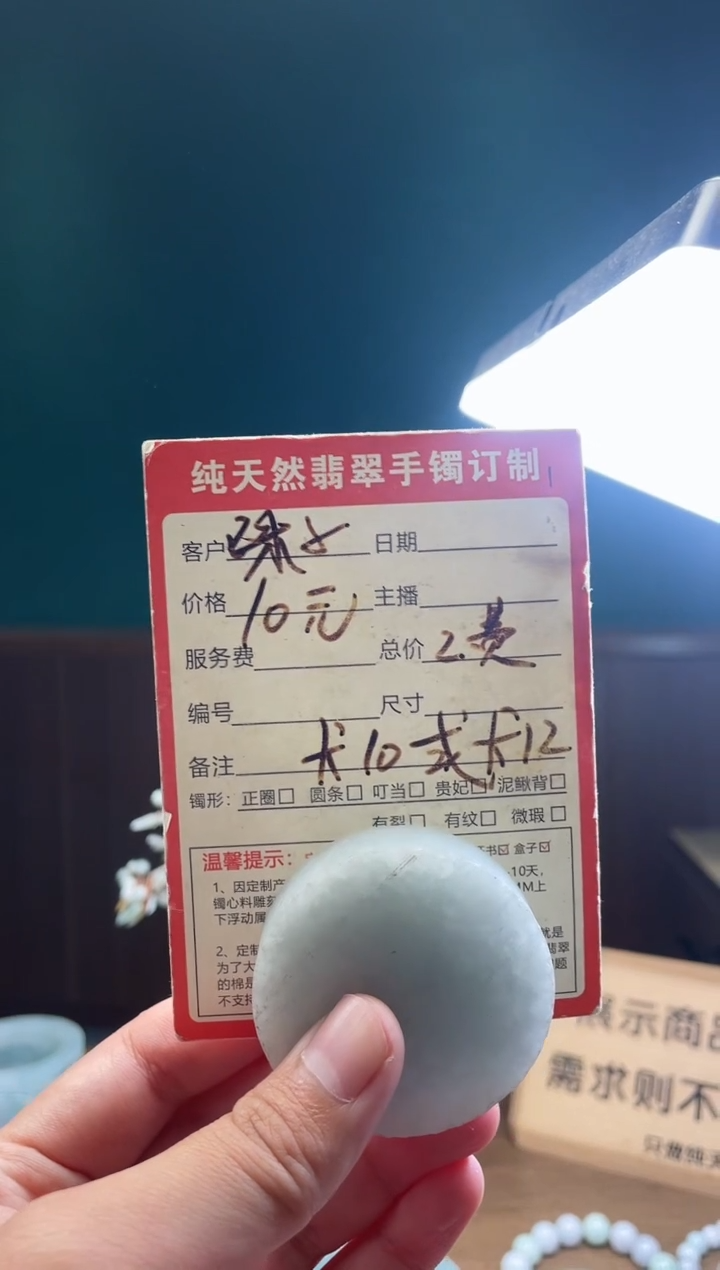 纯天然翡翠手镯订制
客户 珠子 日期
价格 10元 主播
服务费 总价 2.贵
编号 尺寸
备注 卡10或卡12
镯形：正圈□ 圆条□ 叮当□ 贵妃□ 泥鳅背□
有裂□ 有纹□ 微瑕□
温馨提示： 证书☑ 盒子☑
1、因定制产 10天，
镯心料雕刻 MM上
下浮动属
2、定制 就是
为了大 翡翠
的棉是 问题
不支持
展示商品
需求则不